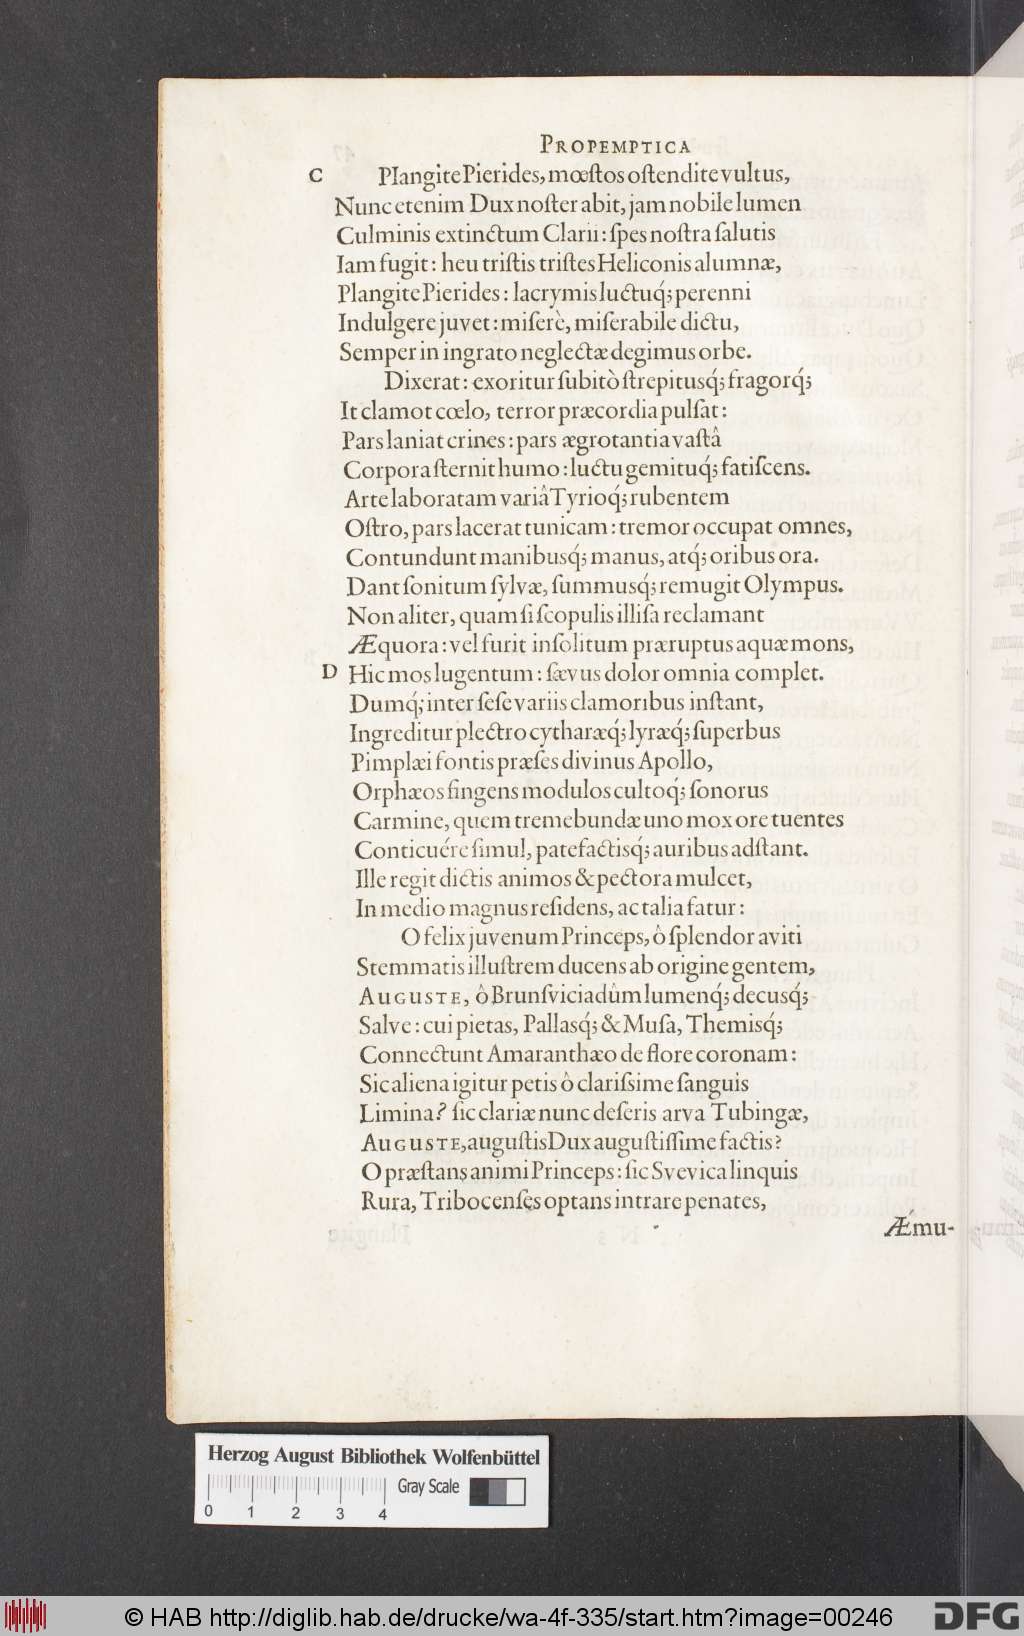 PROPEMPTICA
C PIangite Pierides, mœſtos oſtendite vultus,
Nunc etenim Dux noſter abit, jam nobile lumen
Culminis extinctum Clarii: ſpes noſtra ſalutis
Iam fugit: heu triſtis triſtes Heliconis alumnæ,
Plangite Pierides: lacrymis luctuq́; perenni
Indulgere juvet: miſerè, miſerabile dictu,
Semper in ingrato neglectæ degimus orbe.
Dixerat: exoritur ſubitò ſtrepitusq́; fragorq́;
It clamot cœlo, terror præcordia pulſat:
Pars laniat crines: pars ægrotantia vaſtâ
Corpora ſternit humo: luctu gemituq́; fatiſcens.
Arte laboratam variâ Tyrioq́; rubentem
Oſtro, pars lacerat tunicam: tremor occupat omnes,
Contundunt manibusq́; manus, atq́; oribus ora.
Dant ſonitum ſylvæ, ſummusq́; remugit Olympus.
Non aliter, quam ſi ſcopulis illiſa reclamant
Æquora: vel furit inſolitum præruptus aquæ mons,
D Hic mos lugentum: ſævus dolor omnia complet.
Dumq́; inter ſeſe variis clamoribus inſtant,
Ingreditur plectro cytharæq́; lyræq́; ſuperbus
Pimplæi fontis præſes divinus Apollo,
Orphæos fingens modulos cultoq́; ſonorus
Carmine, quem tremebundæ uno mox ore tuentes
Conticuére ſimul, patefactisq́; auribus adſtant.
Ille regit dictis animos & pectora mulcet,
In medio magnus reſidens, ac talia fatur:
O felix juvenum Princeps, ô ſplendor aviti
Stemmatis illuſtrem ducens ab origine gentem,
AUGUSTE, ô Brunſviciadûm lumenq́; decusq́;
Salve: cui pietas, Pallasq́; & Muſa, Themisq́;
Connectunt Amaranthæo de flore coronam:
Sic aliena igitur petis ò clariſsime ſanguis
Limina? ſic clariæ nunc deſeris arva Tubingæ,
AUGUSTE, auguſtis Dux auguſtiſſime factis?
O præſtans animi Princeps: ſic Svevica linquis
Rura, Tribocenſes optans intrare penates,
Æmu-
Herzog August Bibliothek Wolfenbüttel
Gray Scale
0 1 2 3 4
© HAB http://diglib.hab.de/drucke/wa-4f-335/start.htm?image=00246
DFG